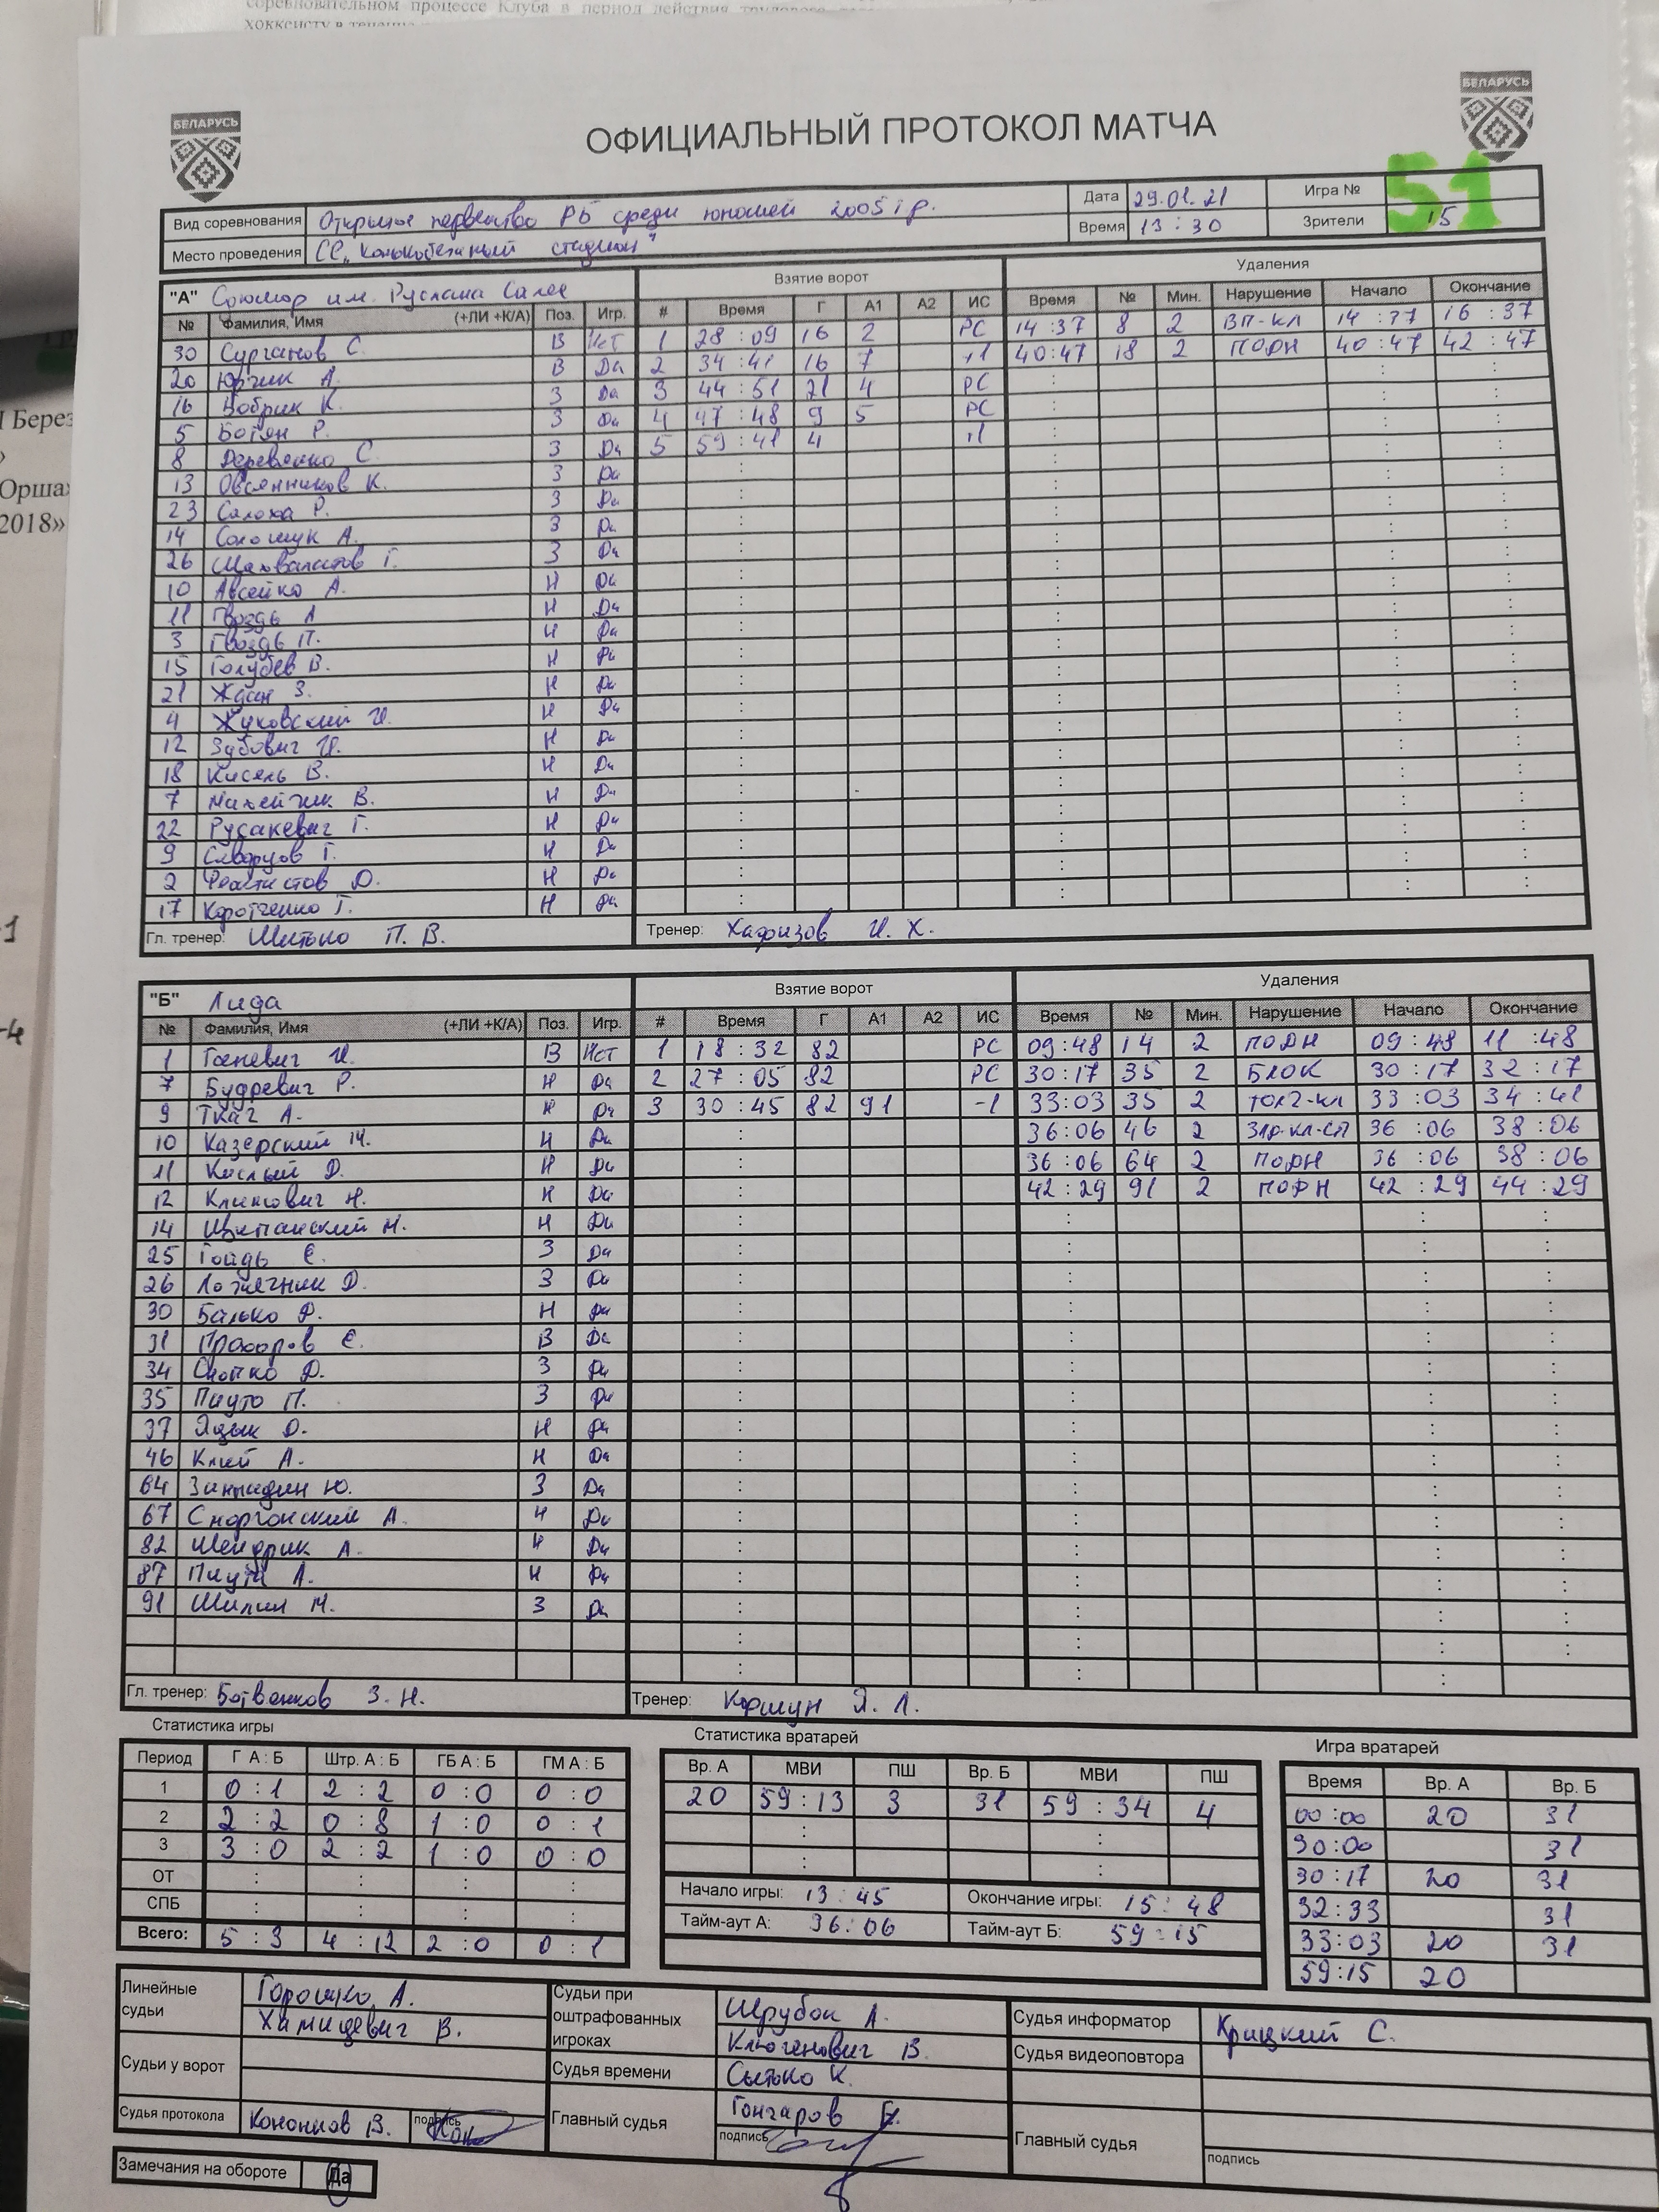 соревновательном процессе Клуба в период действия
хоккеисту в течение
БЕЛАРУСЬ
БЕЛАРУСЬ
ОФИЦИАЛЬНЫЙ ПРОТОКОЛ МАТЧА
Вид соревнования Открытое первенство РБ среди юношей 2005 г.р. Дата 29.01.21 Игра № 51
Место проведения СК "Конькобежный стадион" Время 13:30 Зрители 15
"А" Союмор им. Руслана Салея Взятие ворот Удаления
№ Фамилия, Имя (+ЛИ +К/А) Поз. Игр. # Время Г А1 А2 ИС Время № Мин. Нарушение Начало Окончание
30 Сурганов С. В Нет 1 28:09 16 2 РС 14:37 8 2 ВП-КЛ 14:37 16:37
20 Юрчик А. В Да 2 34:41 16 7 +1 40:47 18 2 ПОДН 40:47 42:47
16 Бобрик К. З Да 3 44:51 21 4 РС
5 Ботян Р. З Да 4 47:48 9 5 РС
8 Деревянко С. З Да 5 59:41 4 +1
13 Овсянников К. З Да
23 Салоха Р. З Да
14 Солошук А. З Да
26 Шахваластов Г. З Да
10 Авсейко А. Н Да
11 Гвоздь А Н Да
3 Гвоздь П. Н Да
15 Голубев В. Н Да
21 Ждан З. Н Да
4 Жуковский И. Н Да
12 Зубович И. Н Да
18 Кисель В. Н Да
7 Михейчик В. Н Да
22 Русакевич Г. Н Да
9 Скворцов Г. Н Да
2 Феоктистов Д. Н Да
17 Коротченко Г. Н Да
Гл. тренер: Шитько П. В. Тренер: Хафизов И. Х.
"Б" Лида Взятие ворот Удаления
№ Фамилия, Имя (+ЛИ +К/А) Поз. Игр. # Время Г А1 А2 ИС Время № Мин. Нарушение Начало Окончание
1 Ганевич И. В Нет 1 18:32 82 РС 09:48 14 2 ПОДН 09:48 11:48
7 Будревич Р. Н Да 2 27:05 82 РС 30:17 35 2 БЛОК 30:17 32:17
9 Ткач А. Н Да 3 30:45 82 91 -1 33:03 35 2 ТОЛЧ-КЛ 33:03 34:41
10 Казерский М. Н Да 36:06 46 2 ЗДР-КЛ-СП 36:06 38:06
11 Кислый Д. Н Да 36:06 64 2 ПОДН 36:06 38:06
12 Климович Н. Н Да 42:29 91 2 ПОДН 42:29 44:29
14 Щитанский Н. Н Да
25 Гойдь Е. З Да
26 Ложечник Д. З Да
30 Балько Д. Н Да
31 Прохоров Е. В Да
34 Снопко Д. З Да
35 Пицуто П. З Да
37 Яцык О. Н Да
46 Клей А. Н Да
64 Зинкидин Ю. З Да
67 Сморгонский А. Н Да
82 Шендрик А. Н Да
87 А. Н Да
91 Шилин М. З Да
Гл. тренер: Ботвенков З. Н. Тренер: Коршун Я. Л.
Статистика игры Статистика вратарей Игра вратарей
Период Г А : Б Штр. А : Б ГБ А : Б ГМ А : Б Вр. А МВИ ПШ Вр. Б МВИ ПШ Время Вр. А Вр. Б
1 0:1 2:2 0:0 0:0 20 59:13 3 31 59:34 4 00:00 20 31
2 2:2 0:8 1:0 0:1 30:00 31
3 3:0 2:2 1:0 0:0 30:17 20 31
ОТ : : : : Начало игры: 13:45 Окончание игры: 15:48 32:33 31
СПБ : : : : Тайм-аут А: 36:06 Тайм-аут Б: 59:15 33:03 20 31
Всего: 5:3 4:12 2:0 0:1 59:15 20
Линейные судьи Горошко А. Судьи при оштрафованных игроках Шрубок А. Судья информатор Крицкий С.
Хамицевич В. Ключенович В. Судья видеоповтора
Судьи у ворот Судья времени Сытько К.
Судья протокола Кононков В. подпись Главный судья Гончаров Е. Главный судья
подпись подпись
Замечания на обороте Да
Берез
Орша
2018»